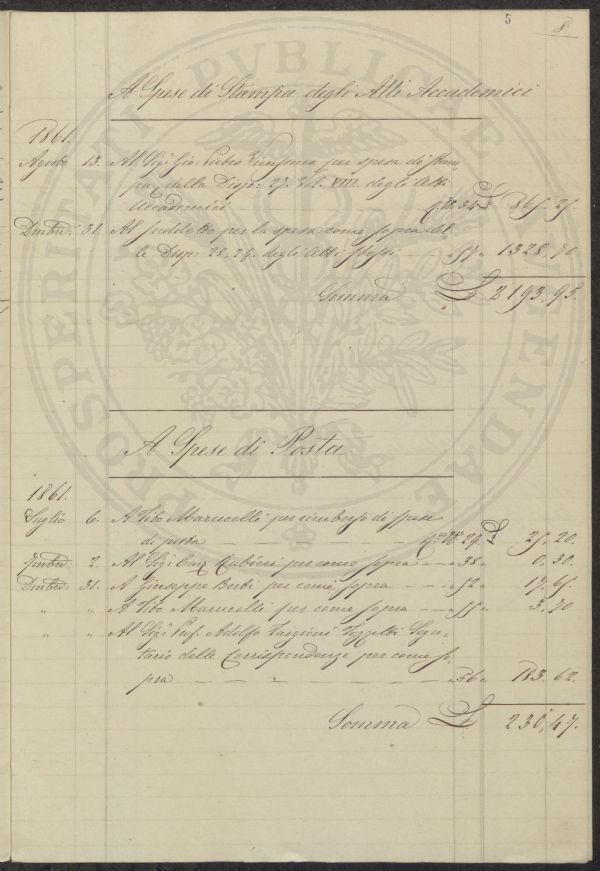 5
8
A Spese di Stampa degli Atti Accademici
1861.
Agosto 13. Al Sig.r Gio. Pietro per spesa di Stam=
pa della Disp: 27. Vol. VIII. degli Atti
Accademici q. N. 34 £ 865. 25.
Dmbre 31. Al suddetto per la spesa come sopra del=
le Disp: 28. 29. degli Atti stessi — " 57 " 1328. 70
Somma £ 2193. 95.
A Spese di Posta
1861.
Luglio 6. A Vito Marucelli per rimborso di spese
di posta — — — q. N. 29. £ 25. 20.
2. Al Sig. Cav. Rubieri per come sopra — " 38 " 0. 30.
Dmbre 31. A Giuseppe Berbi per come sopra — " 52 " 17. 65.
" " A Vito Marucelli per come sopra — " 55 " 3. 70
" " Al Sig.r Prof. Adolfo Targioni Tozzetti Segre=
tario delle Corrispondenze per come so=
pra — — " — — — " 56 " 183. 62.
Somma £ 230. 47.
PROSPERITATI PUBLICAE AUGENDAE